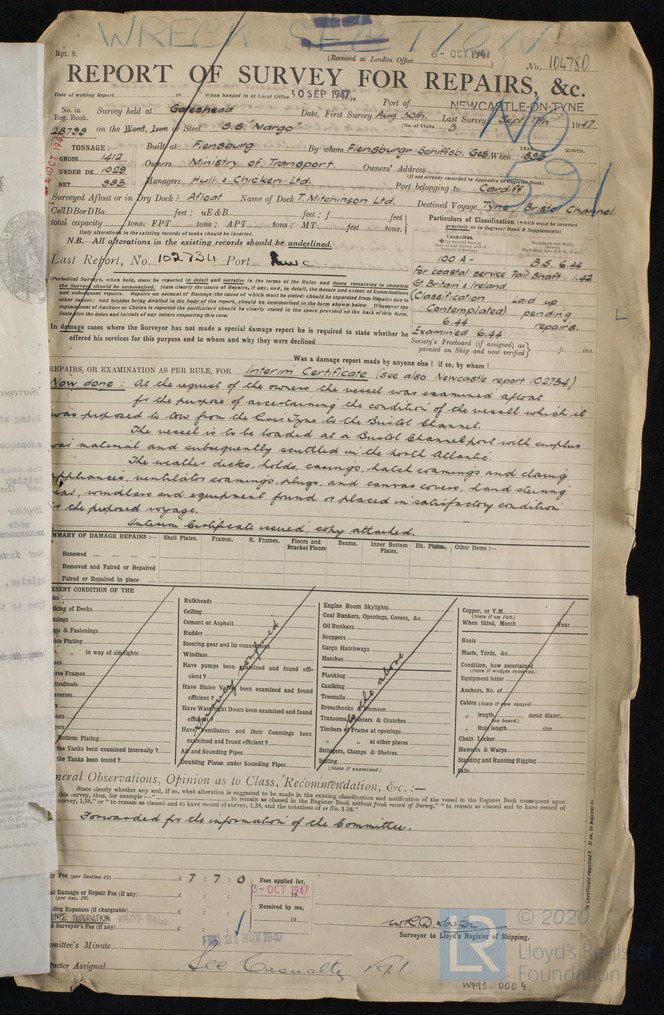 WRECK SECTION
Rpt. 8.
(Received at London Office 6-OCT 1947)
No. 104780
REPORT OF SURVEY FOR REPAIRS, &c.
Date of writing Report 19 When handed in at Local Office 30 SEP 1947 19 Port of NEWCASTLE-ON-TYNE
No. in Reg. Book. Survey held at Gateshead Date, First Survey Aug 30th. Last Survey Sept. 17th. 1947
28799 on the Wood, Iron or Steel S.S. "Margo" (No. of Visits 3
TONNAGE:— Built at Flensburg By whom Flensburgr Schiffsb. Ges. When 1895 YEAR MONTH.
GROSS 1412
UNDER DK. 1029 Owners Ministry of Transport Owners' Address
(if not already recorded in Appendix to Register Book)
NET 993 Managers Hull & Chicken Ltd. Port belonging to Cardiff
Surveyed Afloat or in Dry Dock? Afloat Name of Dock T. Mitchinson Ltd. Destined Voyage Tyne/Bristol Channel.
Cell DBorDBa feet; uE&B feet; f feet
total capacity tons. FPT tons; APT tons; MT feet tons.
Only alterations in the existing records of tanks should be inserted.
N.B.—All alterations in the existing records should be underlined.
Particulars of Classification (which must be inserted precisely as in Register Book & Supplement)
Last Report, No. 102734 Port Nwc
100 A- S.S. 6.44
For coastal service Tail Shaft 1.42
Gt. Britain & Ireland
(Classification Laid up
Contemplated) pending
6.44 repairs.
Examined 6.44
Society's Freeboard (if assigned) as painted on Ship and now verified ft. ins.
(Periodical Surveys, when held, must be reported in detail and seriatim in the terms of the Rules and lines remaining to complete
the Survey should be summarised. State clearly the cause of Repairs, if any, and, in detail, the nature and extent of Examinations
and subsequent repairs.
State also the dates and initials of any letters respecting this case.
In damage cases where the Surveyor has not made a special damage report he is required to state whether he
offered his services for this purpose to and whom and why they were declined
Was a damage report made by anyone else? if so, by whom?
REPAIRS, OR EXAMINATION AS PER RULE, FOR Interim Certificate (see also Newcastle report 102734)
Now done: At the request of the owners the vessel was examined afloat
for the purpose of ascertaining the condition of the vessel which it
was proposed to tow from the River Tyne to the Bristol Channel.
The vessel is to be loaded at a Bristol Channel port with surplus
war material and subsequently scuttled in the north Atlantic.
The weather decks, holds, casings, hatch coamings and closing
appliances, ventilator coamings, plugs, and canvas covers, hand steering
gear, windlass and equipment found or placed in satisfactory condition
for the proposed voyage.
Interim Certificate issued; copy attached.
SUMMARY OF DAMAGE REPAIRS:— Shell Plates. Frames. R. Frames. Floors and Bracket Floors Beams. Inner Bottom Plates. Dk. Plates. Other Items:—
Renewed
Removed and Faired or Repaired
Faired or Repaired in place
PRESENT CONDITION OF THE
Caulking of Decks
& Fastenings
in way of sidelights
Bottom Plating
the Tanks been examined internally?
the Tanks been tested?
Bulkheads
Ceiling
Cement or Asphalt
Rudder
Steering gear and its connections
Windlass
Have pumps been examined and found efficient?
Have Sluice Valves been examined and found efficient?
Have Watertight Doors been examined and found efficient?
Have Ventilators and their Coamings been examined and found efficient?
Air and Sounding Pipes
Doubling Plates under Sounding Pipes
Engine Room Skylights
Coal Bunkers, Openings, Covers, &c.
Oil Bunkers
Scuppers
Cargo Hatchways
Hatches
Planking
Caulking
Treenails
Breasthooks & Stemson
Transoms, Pointers & Crutches
Timbers of Frame at openings
" " at other places
Stringers, Clamps & Shelves
Salting
(State if examined.)
see above
Copper, or Y.M.
(State if on Felt.)
When fitted, Month Year
Boats
Masts, Yards, &c.
Condition, how ascertained
(State if wedges removed.)
Equipment letter
Anchors, No. of
Cables (State if now ranged)
" length mean diamr.
(on board.)
" Rule length size
Chain Locker
Hawsers & Warps
Standing and Running Rigging
Sails
General Observations, Opinion as to Class, Recommendation, &c.:—
State clearly whether any, and if so, what alteration is suggested to be made in the existing classification and notification of the vessel in the Register Book consequent upon
this survey, thus, for example:—" to remain as classed in the Register Book without fresh record of Survey," " to remain as classed and to have record of
survey, 1,38," or " to remain as classed and to have record of survey, 1,38, and the notations of
Forwarded for the information of the Committee.
Fee (per Section 29) £ 7 : 7 : 0 Fees applied for,
3-OCT 1947
Special Damage or Repair Fee (if any) (per Sec. 29) £ 19
Travelling Expenses (if chargeable) Received by me,
Surveyor's Fee (if any) 19
Surveyor to Lloyd's Register of Shipping.
Committee's Minute FRI 21 NOV 1947
Character Assigned See Casualty Rpt
© 2020
LR
Lloyd's Register
Foundation
W995-0004